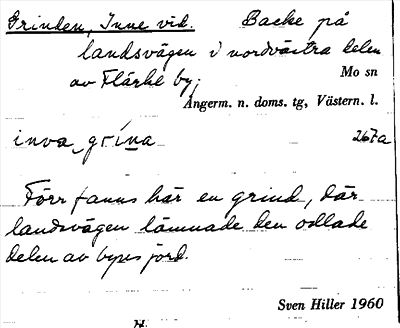 Grinden, Inne vid. Backe på
landsvägen i nordvästra delen
av Flärke by;
Mo sn
Ångerm. n. doms. tg, Västern. l.
inva grína 267a
Förr fanns här en grind, där
landsvägen lämnade den odlade
delen av byns jord.
Sven Hiller 1960
H.